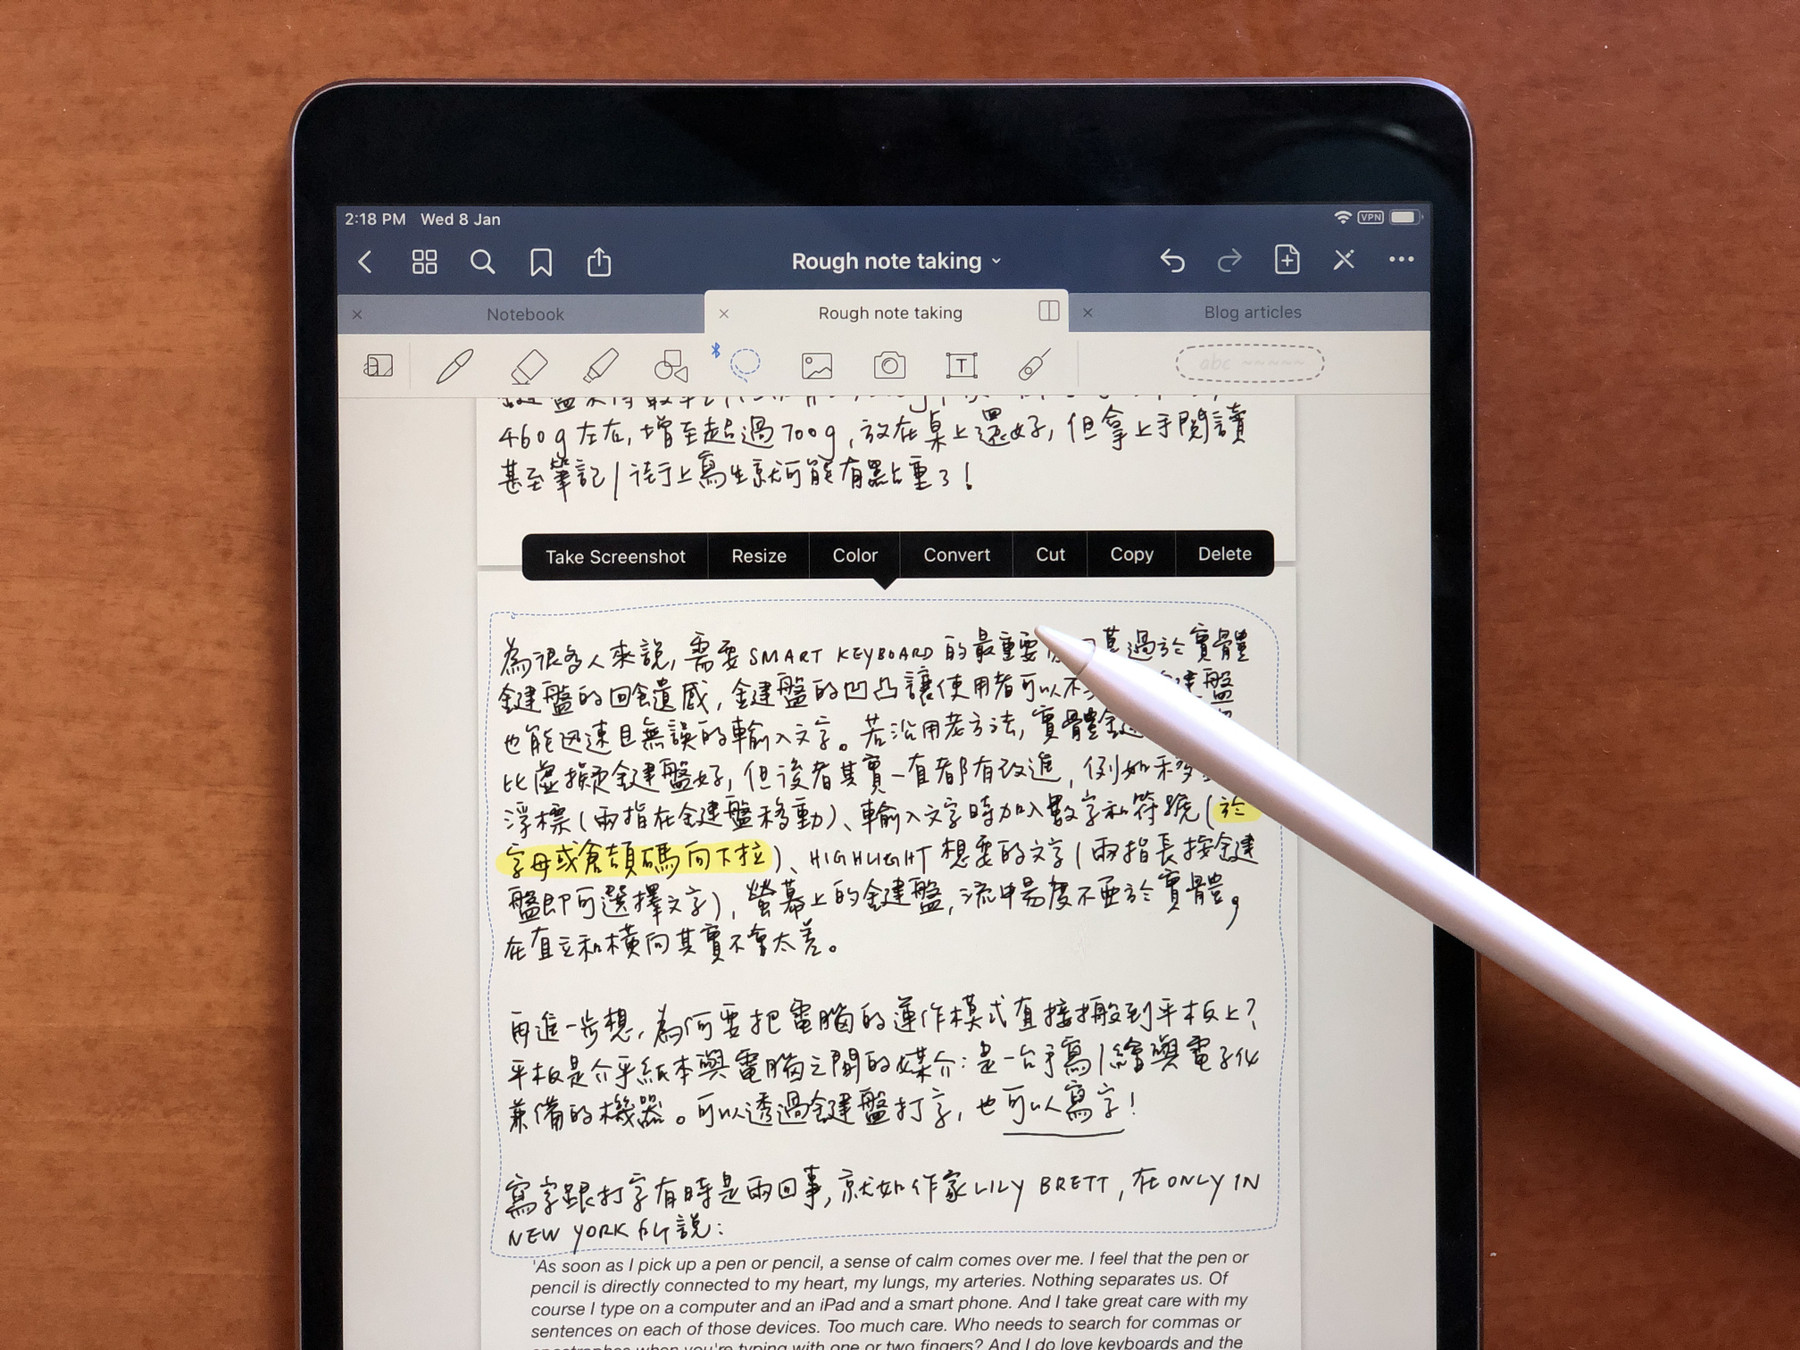 2:18 PM Wed 8 Jan VPN
Rough note taking
Notebook Rough note taking Blog articles
T abc
460g左右,增至起過700g,放在桌上還好,但拿上手閱讀
甚至筆記/街上寫生就可能有點重了!
Take Screenshot Resize Color Convert Cut Copy Delete
為很多人來說,需要SMART KEYBOARD的最重要 莫過於實體
鍵盤的回饋感,鍵盤的凹凸讓使用者可以不 鍵盤
也能迅速且無誤的輸入文字。若沿用老方法,實體鍵
比虛擬鍵盤好,但後者其實一直都有改進,例如移
浮標(兩指在鍵盤移動)、輸入文字時加入數字和符號(於
字母或倉頡碼向下拉)、HIGHLIGHT想要的文字(兩指長按鍵
盤即可選擇文字),螢幕上的鍵盤,流暢度不亞於實體,
在直立和橫向其實不會太差。
再進一步想,為何要把電腦的運作模式直接搬到平板上?
平板是介乎紙本與電腦之間的媒介:是一台手寫/繪與電子化
兼備的機器。可以透過鍵盤打字,也可以寫字!
寫字跟打字有時是兩回事,就如作家LILY BRETT,在ONLY IN
NEW YORK所說:
'As soon as I pick up a pen or pencil, a sense of calm comes over me. I feel that the pen or
pencil is directly connected to my heart, my lungs, my arteries. Nothing separates us. Of
course I type on a computer and an iPad and a smart phone. And I take great care with my
sentences on each of those devices. Too much care. Who needs to search for commas or
apostrophes when you're typing with one or two fingers? And I do love keyboards and the